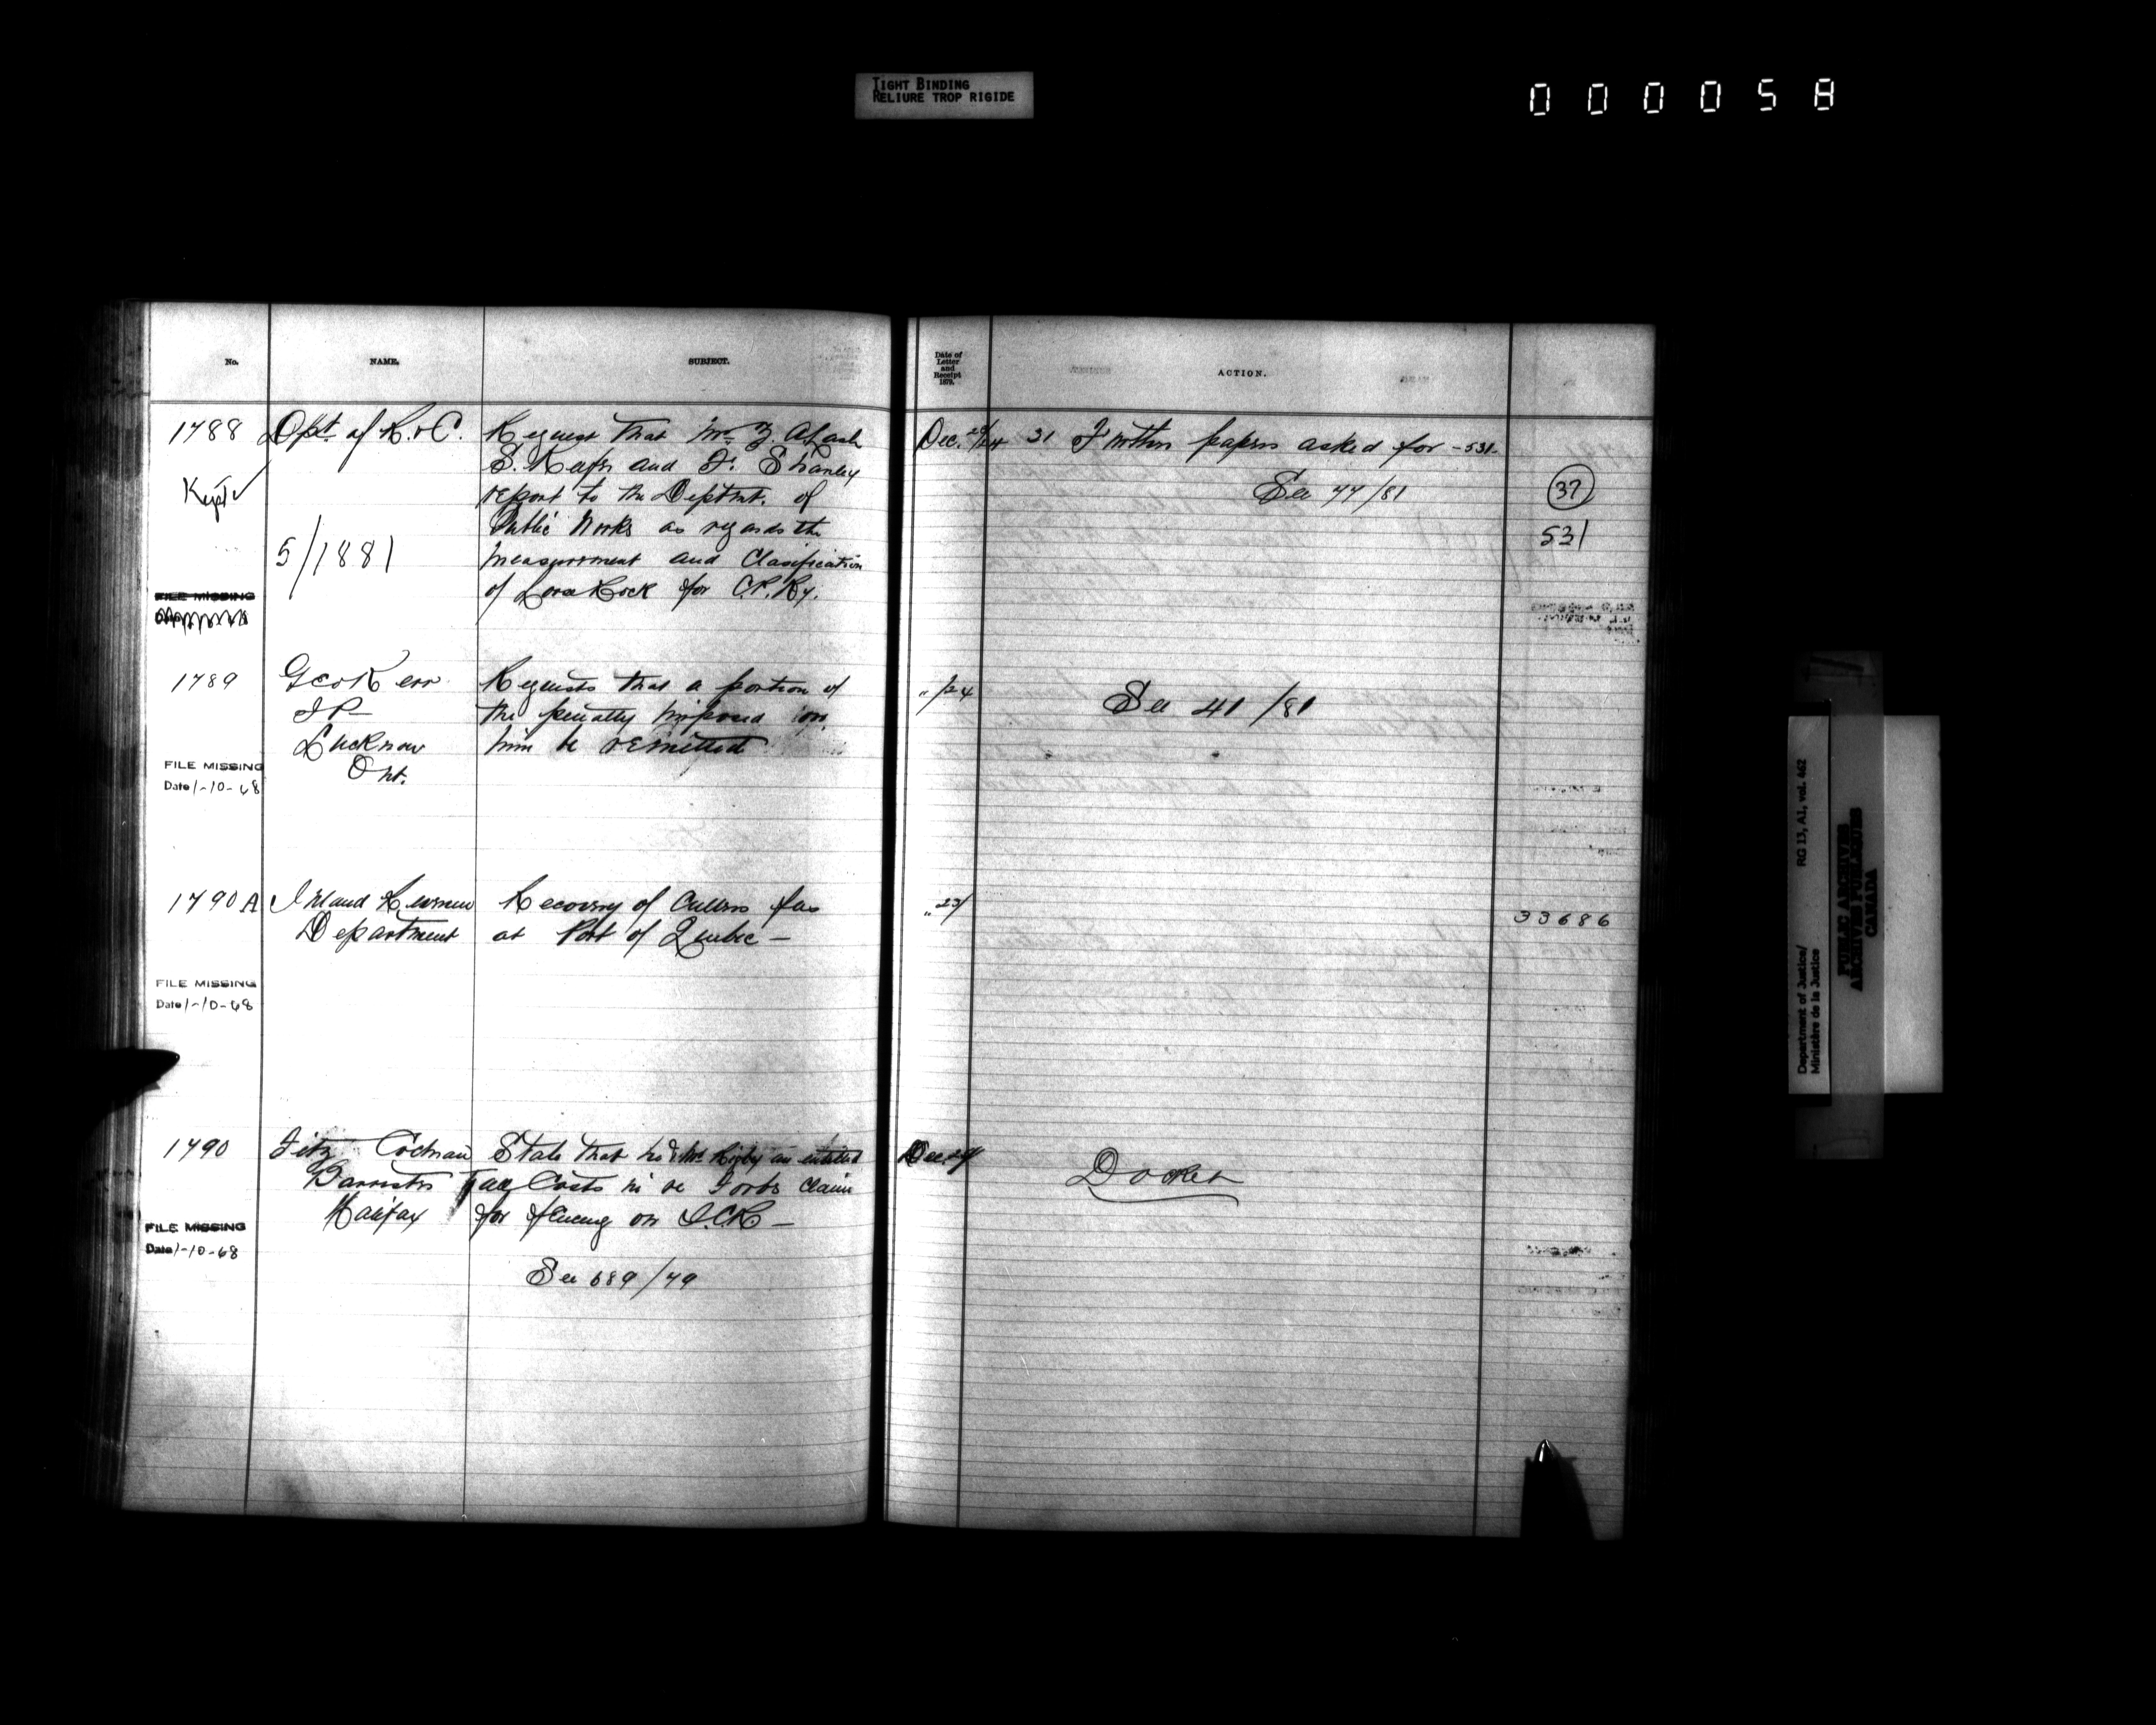 TIGHT BINDING
RELIURE TROP RIGIDE
000058
No.
NAME.
SUBJECT.
Date of
Letter
and
Receipt
1879.
ACTION.
1788
Dpt. of R. & C.
Request that Mr. Z. A. Lash
S. Keefer and F. Shanley
report to the Deptmt. of
Public Works as regards the
measurement and Clasification
of Loose Rock for C.P.Ry.
Kept
5/1881
FILE MISSING
Dec. 23/24
31 Further papers asked for -531-
See 77/81
37
531
1789
Geo Kerr
J P
Lucknow
Ont.
Requests that a portion of
the penalty imposed on
him be remitted
FILE MISSING
Date 1-10-68
" /24
See 41/81
1790 A
Inland Revenue
Department
Recovery of Cullers fees
at Port of Quebec —
FILE MISSING
Date 1-10-68
" 23/
33686
1790
Fitz Cochran
Barrister
Halifax
State that he & Mr. Rigby are entitled
Costs in re Forbs claim
for fencing on I.C.R —
See 689/79
FILE MISSING
Date 1-10-68
Dec.
Docket
Department of Justice/
Ministère de la Justice
RG 13, A1, vol. 462
PUBLIC ARCHIVES
ARCHIVES PUBLIQUES
CANADA